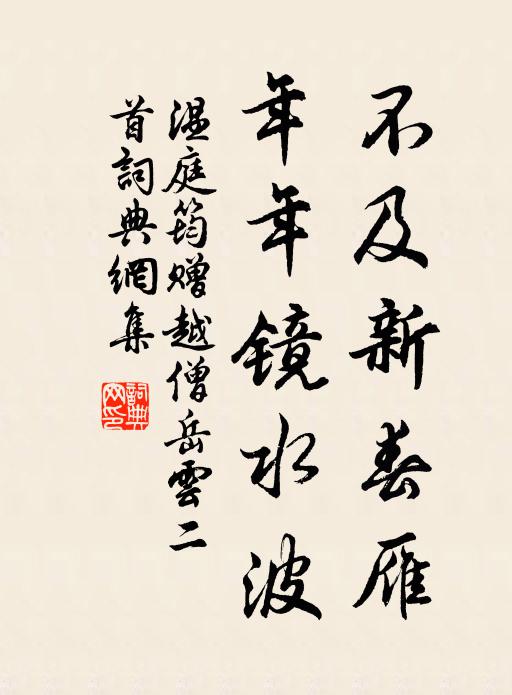 不及新春雁
年年镜水波
温庭筠赠越僧岳雲二
首詞典網集
詞典
网印